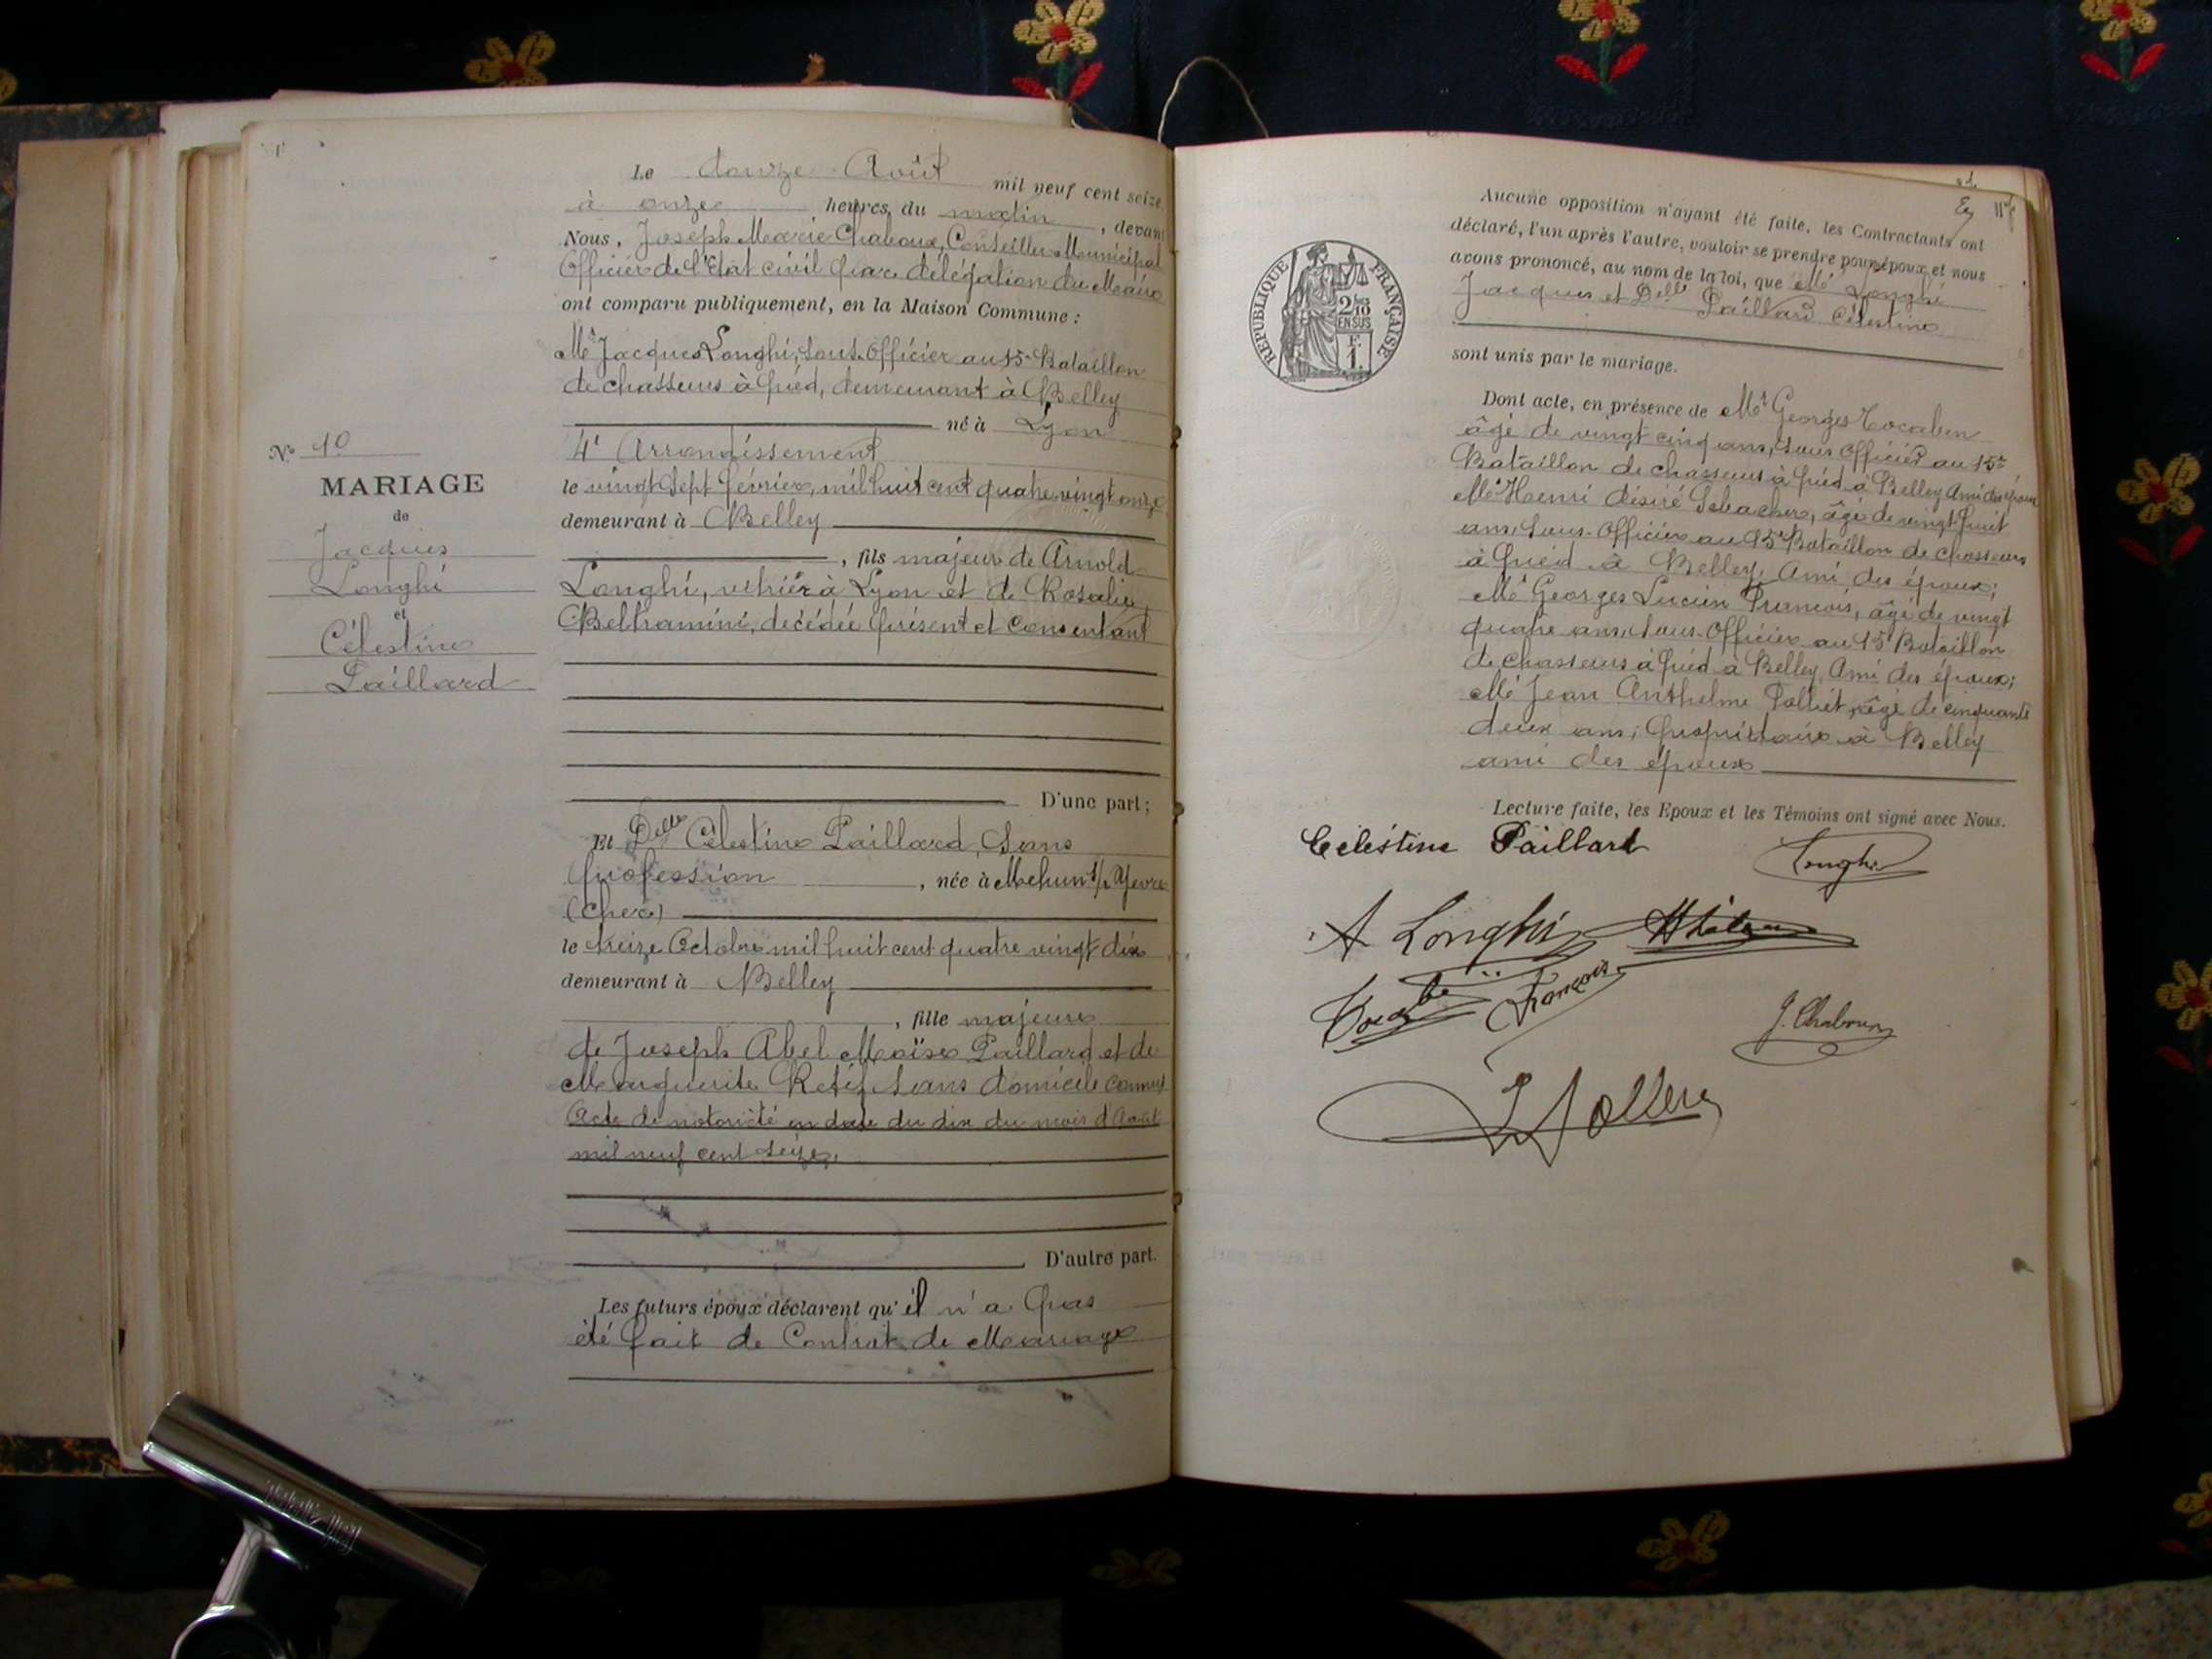 Le douze Août mil neuf cent seize
à onze heures du matin, devant
Nous, Joseph Marie Chaboux, Conseiller Municipal
Officier de l'Etat civil par délégation du Maire
ont comparu publiquement, en la Maison Commune :
Mr Jacques Longhi, sous-officier au 15e Bataillon
de chasseurs à pied, demeurant à Belley
né à Lyon
4e Arrondissement
le vingt sept février, mil huit cent quatre vingt onze
demeurant à Belley
, fils majeur de Arnold
Longhi, vitrier à Lyon et de Rosalie
Beltramini, décédée présent et consentant
D'une part ;
No 40
MARIAGE
de
Jacques
Longhi
et
Célestine
Paillard
Et Delle Célestine Paillard, Sans
profession, née à Mehun s/ Yevre
(Cher)
le treize Octobre mil huit cent quatre vingt dix
demeurant à Belley
, fille majeure
de Joseph Abel Moïse Paillard et de
Marguerite Retif sans domicile connus
Acte de notoriété en date du dix du mois d'Août
mil neuf cent seize,
D'autre part.
Les futurs époux déclarent qu'il n'a pas
été fait de Contrat de Mariage
REPUBLIQUE FRANÇAISE
2/10
EN SUS
F.
1.
Aucune opposition n'ayant été faite, les Contractants ont
déclaré, l'un après l'autre, vouloir se prendre pour époux et nous
avons prononcé, au nom de la loi, que Mr Longhi
Jacques et Delle Paillard Célestine
sont unis par le mariage.
Dont acte, en présence de Mr Georges Tocaben
âgé de vingt cinq ans, sous Officier au 15e
Bataillon de chasseurs à pied à Belley Ami des époux
Mr Henri désiré, âgé de vingt huit
ans, sous-Officier au 15e Bataillon de chasseurs
à pied à Belley, Ami des époux ;
Mr Georges Lucien François, âgé de vingt
quatre ans, sous-Officier au 15e Bataillon
de chasseurs à pied à Belley, Ami des époux ;
Mr Jean Anthelme Pollet, âgé de cinquante
deux ans, propriétaire à Belley
ami des époux
Lecture faite, les Epoux et les Témoins ont signé avec Nous.
Celéstine Paillard
Longhi
A Longhi
François
J. Chaboux